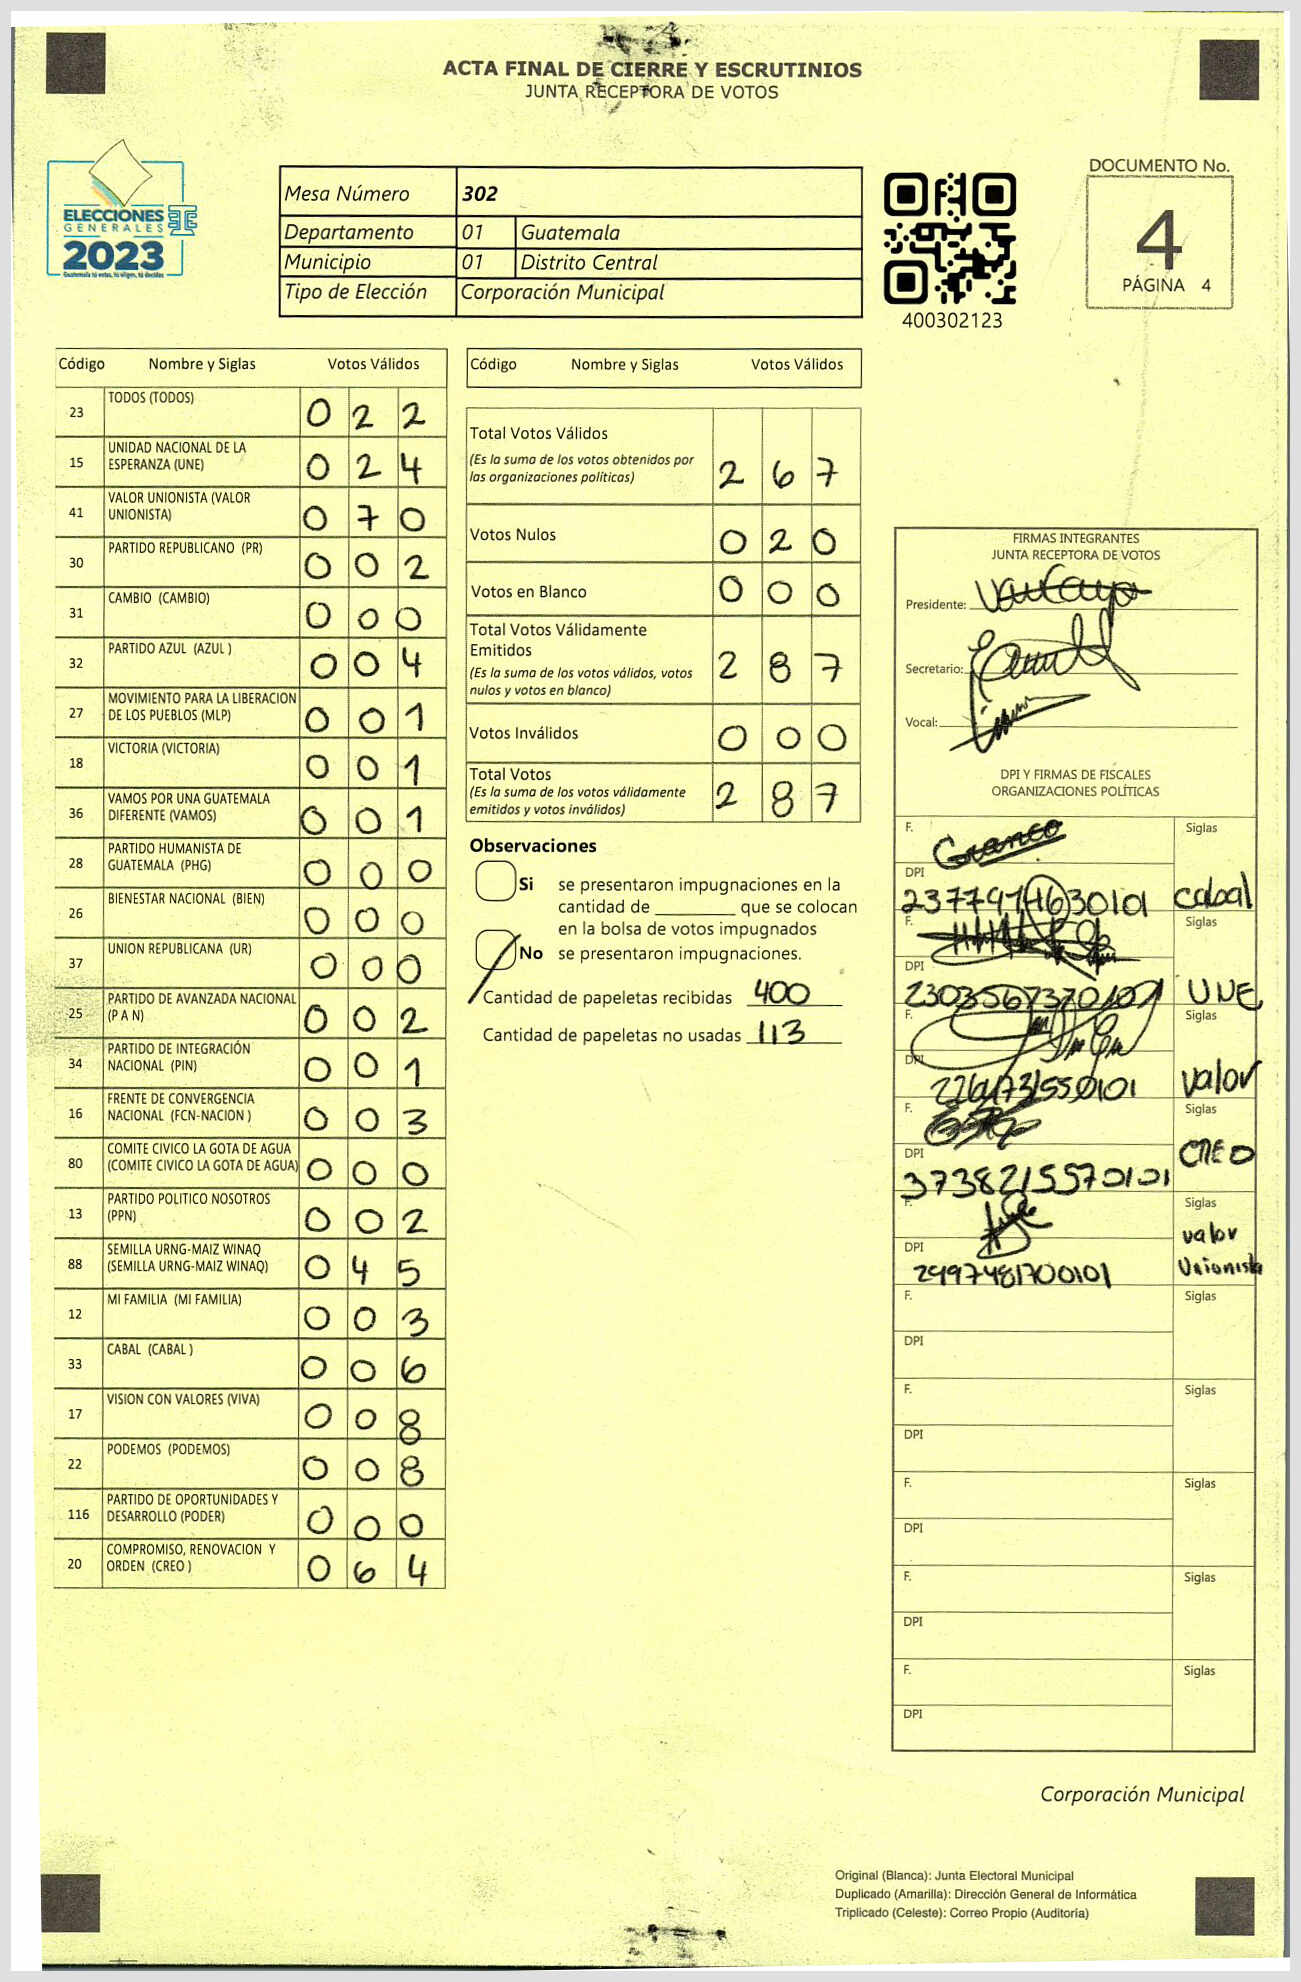 ACTA FINAL DE CIERRE Y ESCRUTINIOS
JUNTA RECEPTORA DE VOTOS
ELECCIONES
GENERALES
2023
Guatemala tú votas, tú eliges, tú decides
Mesa Número 302
Departamento 01 Guatemala
Municipio 01 Distrito Central
Tipo de Elección Corporación Municipal
400302123
DOCUMENTO No.
4
PÁGINA 4
Código Nombre y Siglas Votos Válidos
23 TODOS (TODOS) 0 2 2
15 UNIDAD NACIONAL DE LA
ESPERANZA (UNE) 0 2 4
41 VALOR UNIONISTA (VALOR
UNIONISTA) 0 7 0
30 PARTIDO REPUBLICANO (PR) 0 0 2
31 CAMBIO (CAMBIO) 0 0 0
32 PARTIDO AZUL (AZUL ) 0 0 4
27 MOVIMIENTO PARA LA LIBERACION
DE LOS PUEBLOS (MLP) 0 0 1
18 VICTORIA (VICTORIA) 0 0 1
36 VAMOS POR UNA GUATEMALA
DIFERENTE (VAMOS) 0 0 1
28 PARTIDO HUMANISTA DE
GUATEMALA (PHG) 0 0 0
26 BIENESTAR NACIONAL (BIEN) 0 0 0
37 UNION REPUBLICANA (UR) 0 0 0
25 PARTIDO DE AVANZADA NACIONAL
(P A N) 0 0 2
34 PARTIDO DE INTEGRACIÓN
NACIONAL (PIN) 0 0 1
16 FRENTE DE CONVERGENCIA
NACIONAL (FCN-NACION ) 0 0 3
80 COMITE CIVICO LA GOTA DE AGUA
(COMITE CIVICO LA GOTA DE AGUA) 0 0 0
13 PARTIDO POLITICO NOSOTROS
(PPN) 0 0 2
88 SEMILLA URNG-MAIZ WINAQ
(SEMILLA URNG-MAIZ WINAQ) 0 4 5
12 MI FAMILIA (MI FAMILIA) 0 0 3
33 CABAL (CABAL ) 0 0 6
17 VISION CON VALORES (VIVA) 0 0 8
22 PODEMOS (PODEMOS) 0 0 8
116 PARTIDO DE OPORTUNIDADES Y
DESARROLLO (PODER) 0 0 0
20 COMPROMISO, RENOVACION Y
ORDEN (CREO ) 0 6 4
Código Nombre y Siglas Votos Válidos
Total Votos Válidos
(Es la suma de los votos obtenidos por
las organizaciones políticas) 2 6 7
Votos Nulos 0 2 0
Votos en Blanco 0 0 0
Total Votos Válidamente
Emitidos
(Es la suma de los votos válidos, votos
nulos y votos en blanco) 2 8 7
Votos Inválidos 0 0 0
Total Votos
(Es la suma de los votos válidamente
emitidos y votos inválidos) 2 8 7
Observaciones
Si se presentaron impugnaciones en la
cantidad de ________ que se colocan
en la bolsa de votos impugnados
No se presentaron impugnaciones.
Cantidad de papeletas recibidas 400
Cantidad de papeletas no usadas 113
FIRMAS INTEGRANTES
JUNTA RECEPTORA DE VOTOS
Presidente:
Secretario:
Vocal:
DPI Y FIRMAS DE FISCALES
ORGANIZACIONES POLÍTICAS
F. Siglas
DPI
cabal
F. Siglas
DPI
UNE
F. Siglas
DPI
valor
F. Siglas
DPI
3738215570101 CREO
F. Siglas
DPI
2997481700101 valor
Unionista
F. Siglas
DPI
F. Siglas
DPI
F. Siglas
DPI
F. Siglas
DPI
F. Siglas
DPI
Corporación Municipal
Original (Blanca): Junta Electoral Municipal
Duplicado (Amarilla): Dirección General de Informática
Triplicado (Celeste): Correo Propio (Auditoría)